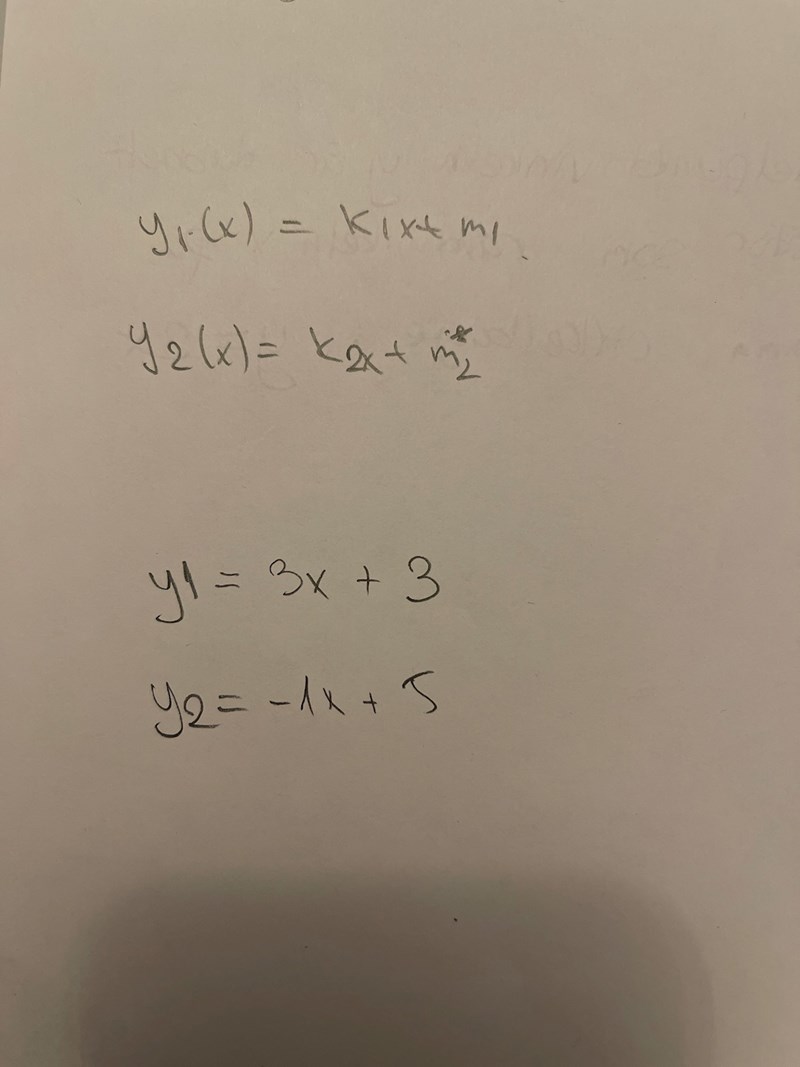 y₁(x) = k₁x + m₁
y₂(x) = k₂x + m₂
y1 = 3x + 3
y2 = -1x + 5